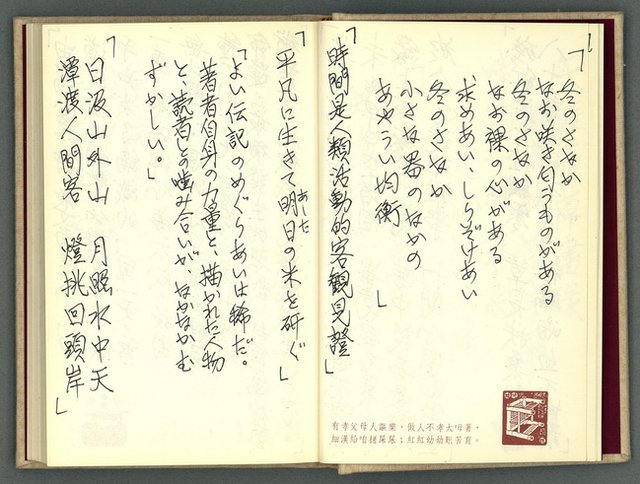 「
冬のさなか
なお咲き匂うものがある
冬のさなか
なお裸の心がある
求めあい、しりぞけあい
冬のさなか
小さな器のなかの
あやうい均衡
」
「時間是人類活動的客觀見證」
「平凡に生きて明日の米を研ぐ」
あした
「よい伝記のめぐりあいは稀だ。
著者自身の力量と、描かれた人物
と、読者との噛み合いが、なかなかむ
ずかしい。」
「日汲山外山 月照水中天
潭渡人間客 燈挑回頭岸」
有孝父母人謳樂，做人不孝大毋著，
細漢給咱搓屎尿；紅紅幼幼